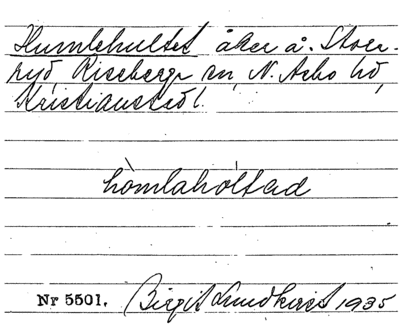 Humlehultet åker å. Stoer-
ryd, Riseberga sn, N. Åsbo hd,
Kristianstad l.
hòmlahóltad
Nr 5501. Birgit Lundkvist 1935